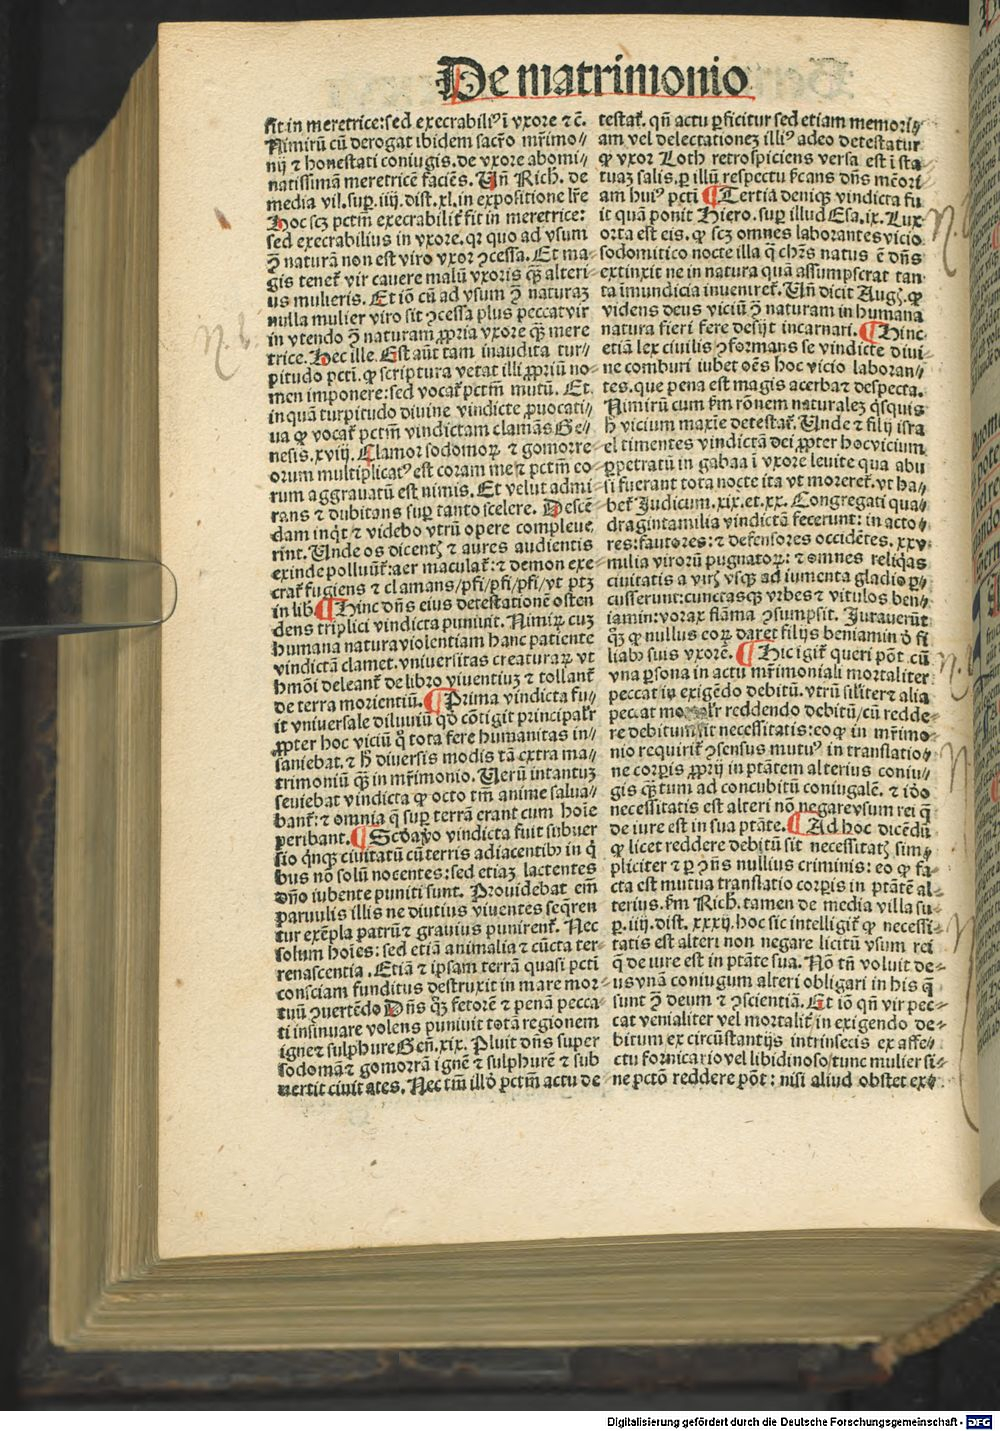 De matrimonio
sit in meretrice: sed execrabiliꝰ ī vxore ⁊ c̄.
Nimirū cū derogat ibidem sacr̄o mr̄imo⸗
nij ⁊ honestati coniugis. de vxore abomi⸗
natissimā meretricē faciēs. Uñ Rich. de
media vil. sup. iiij. dist. xl. in expositione lr̄e
Hoc scꝫ pctm̄ execrabilit̄ fit in meretrice:
sed execrabilius in vxore. qꝛ quo ad vsum
ꝯ̄ naturā non est viro vxor ꝯcessa. Et ma⸗
gis tenet̄ vir cauere malū vxoris qꝫ̄ alteri⸗
us mulieris. Et iō cū ad vsum ꝯ̄ naturaꝫ
nulla mulier viro sit ꝯcessa plus peccat vir
in vtendo ꝯ̄ naturam ꝓpria vxore qꝫ̄ mere
trice. Hec ille. Est aūt tam inaudita tur⸗
pitudo pcti. ꝙ scriptura vetat illi ꝓpriū no⸗
men imponere: sed vocat̄ pctm̄ mutū. Et
in quā turpitudo diuine vindicte ꝓuocati⸗
ua ꝙ vocat̄ pctm̄ vindictam clamās Ge⸗
nesis. xviij. Clamor sodomoꝝ ⁊ gomorre
orum multiplicatꝰ est coram me ⁊ pctm̄ eo⸗
rum aggrauatū est nimis. Et velut admi⸗
rans ⁊ dubitans sup̄ tanto scelere. Descē⸗
dam inqt̄ ⁊ videbo vtrū opere compleue
rint. Unde os dicentꝭ ⁊ aures audientis
exinde polluūt̄: aer maculat̄: ⁊ demon exe⸗
crat̄ fugiens ⁊ clamans/pfi/pfi/pfi/vt ptꝫ
in lib. ¶ Hinc dn̄s eius detestationē osten
dens triplici vindicta puniuit. Nimiꝝ cuꝫ
humana natura violentiam hanc patiente
vindictā clamet. vniuersitas creaturaꝝ vt
hmōi deleant̄ de libro viuentiuꝫ ⁊ tollant̄
de terra morientiū. ¶ Prima vindicta fu⸗
it vniuersale diluuiū qd̄ cōtigit principalr̄
ꝓpter hoc viciū q̄ tota fere humanitas in⸗
saniebat. ⁊ h̄ diuersis modis tā extra ma⸗
trimoniū qꝫ̄ in mr̄imonio. Uerū intantuꝫ
seuiebat vindicta ꝙ octo tm̄ anime salua⸗
bant̄: ⁊ omnia q̄ sup̄ terrā erant cum hoīe
peribant. ¶ Scd̄a vindicta fuit subuer
sio qnqꝫ ciuitatū cū terris adiacentibꝰ in q̄
bus nō solū nocentes: sed etiaꝫ lactentes
dn̄o iubente puniti sunt. Prouidebat em̄
paruulis illis ne diutius viuentes seqren
tur exēpla patrū ⁊ grauius punirent̄. Nec
solum hoīes: sed etiā animalia ⁊ cūcta ter⸗
renascentia. Etiā ⁊ ipsam terrā quasi pcti
consciam funditus destruxit in mare mor⸗
tuū ꝯuertēdo Dn̄s qꝫ̄ fetorē ⁊ penā pecca⸗
ti insinuare volens puniuit totā regionem
igne ⁊ sulphure Gen̄. xix. Pluit dn̄s super
sodomā ⁊ gomorrā ignē ⁊ sulphurē ⁊ sub
uertit ciuitates. Nec tm̄ illd̄ pctm̄ actu de
testat̄. qn̄ actu ꝑficitur sed etiam memori⸗
am vel delectationeꝫ illiꝰ adeo detestatur
ꝙ vxor Loth retrospiciens versa est ī sta⸗
tuaꝫ salis. ꝑ illū respectu fr̄cans dn̄s mēori
am huiꝰ pcti ¶ Tertia deniqꝫ vindicta fu
it quā ponit Hiero. sup̄ illud Esa. ix. Lux
orta est eis. ꝙ scꝫ omnes laborantes vicio
sodomitico nocte illa q̄ chr̄s natus ē dn̄s
extinxit ne in natura quā assumpserat tan⸗
ta īmundicia inueniret̄. Uñ dicit Augꝭ. ꝙ
videns deus viciū ꝯ̄ naturam in humana
natura fieri fere desijt incarnari. ¶ Hinc
etiā lex ciuilis ꝯformans se vindicte diui⸗
ne comburi iubet oēs hoc vicio laboran⸗
tes. que pena est magis acerba ⁊ despecta.
Nimirū cum f̄m rōnem naturaleꝫ qsquis
h̄ vicium maxīe detestat̄. Unde ⁊ filij isra
el timentes vindictā dei ꝓpter hoc vicium
ꝑpetratū in gabaa ī vxore leuite qua abu
si fuerant tota nocte ita vt moreret̄. vt ha⸗
bet̄ Judicum. xix. et. xx. Congregati qua⸗
draginta milia vindictā fecerunt: in acto⸗
res: fautores: ⁊ defensores occidētes. xxv.
milia virorū pugnatoꝝ: ⁊ omnes reliqas
ciuitatis a virꝭ vsqꝫ ad iumenta gladio ꝑ⸗
cusserunt: cunctasqꝫ vrbes ⁊ vitulos ben⸗
iamin: vorax flāma ꝯsumpsit. Jurauerūt
qꝫ̄ ꝙ nullus eoꝝ daret filijs beniamin d̄ fi
liabꝰ suis vxorē. ¶ Hic igit̄ queri pōt cū
vna ꝑsona in actu mr̄imoniali mortaliter
peccat in exigēdo debitū. vtrū silr̄iter ⁊ alia
peccat mortalr̄ reddendo debitū/cū redde⸗
re debitum sit necessitatis: eo ꝙ in mr̄imo⸗
nio requirit̄ ꝯsensus mutuꝰ in translatio⸗
ne corpis ꝓprij in ptātem alterius coniu⸗
gis qꝫ̄tum ad concubitū coniugalē. ⁊ ido
necessitatis est alteri nō negare vsum rei q̄
de iure est in sua ptāte. ¶ Ad hoc dicēdū
ꝙ licet reddere debitū sit necessitatꝭ sim⸗
pliciter ⁊ ꝑ ꝯn̄s nullius criminis: eo ꝙ fa⸗
cta est mutua translatio corꝑis in ptātē al⸗
terius. f̄m Rich. tamen de media villa su⸗
ꝑ. iiij. dist. xxxij. hoc sic intelligit̄ ꝙ necessi⸗
tatis est alteri non negare licitū vsum rei
q̄ de iure est in ptāte sua. Nō tn̄ voluit de⸗
us vnā coniugum alteri obligari in his q̄
sunt ꝯ̄ deum ⁊ ꝯscientiā. Et iō qn̄ vir pec⸗
cat venialiter vel mortalit̄ in exigendo de⸗
bitum ex circūstantijs intrinsecis ex affe⸗
ctu fornicario vel libidinoso/tunc mulier si⸗
ne pctō reddere pōt: nisi aliud obstet ex⸗
Digitalisierung gefördert durch die Deutsche Forschungsgemeinschaft - DFG